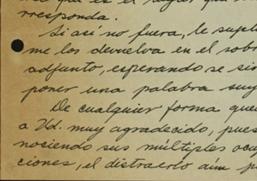 que es el
rresponda.
Si así no fuera, le supli
me los devuelva en el sobr
adjunto, esperando se si
poner una palabra suy
De cualquier forma que
a Vd. muy agradecido, pues
nociendo sus múltiples ocup
ciones, el distraerlo aún p